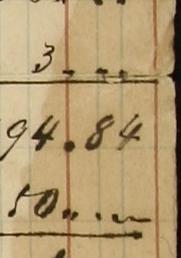 3 . . .
94.84
50 . . .